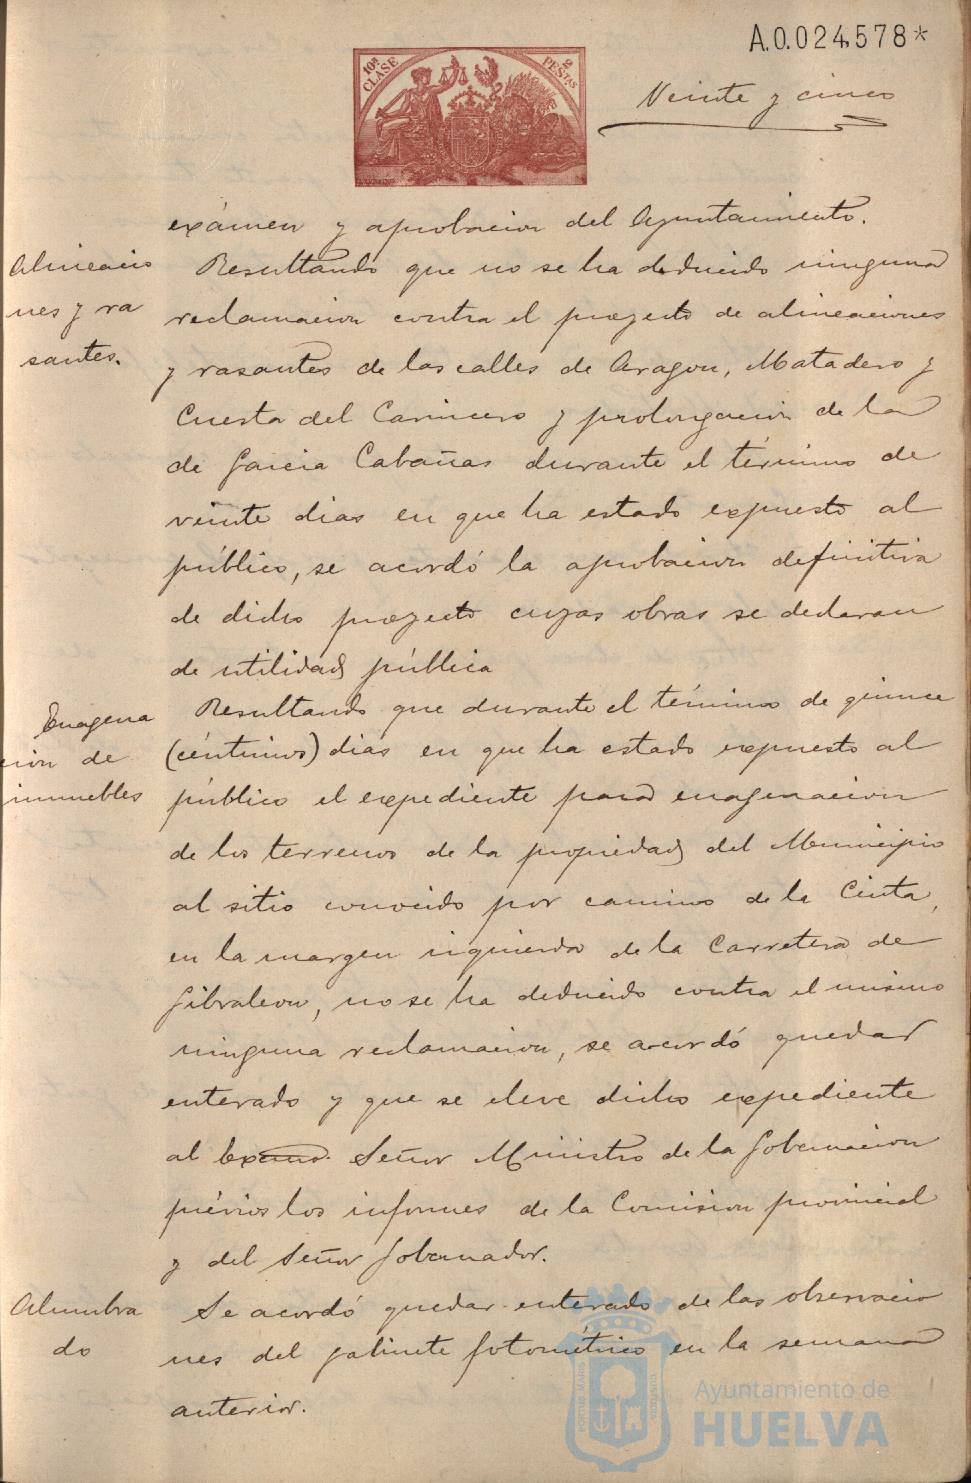 A.0.024,578*
10ª CLASE
2 PESTAS
Veinte y cinco
exámen y aprobacion del Ayuntamiento.
Alineacio
nes y ra
santes.
Resultando que no se ha deducido ninguna
reclamacion contra el proyecto de alineaciones
y rasantes de las calles de Aragon, Matadero y
Cuesta del Carnicero y prolongacion de la
de Garcia Cabañas durante el término de
veinte dias en que ha estado expuesto al
público, se acordó la aprobacion definitiva
de dicho proyecto cuyas obras se declaran
de utilidad pública
Enagena
cion de
inmuebles
Resultando que durante el término de quince
(céntimos) dias en que ha estado expuesto al
público el expediente para enagenacion
de los terrenos de la propiedad del Municipio
al sitio conocido por camino de la Cinta,
en la margen izquierda de la Carretera de
Gibraleon, no se ha deducido contra el mismo
ninguna reclamacion, se acordó quedar
enterado y que se eleve dicho expediente
al Excmo. Señor Ministro de la Gobernacion
prévios los informes de la Comision provincial
y del Señor Gobernador.
Alumbra
do
Se acordó quedar enterado de las observacio
nes del gabinete fotométrico en la semana
anterior.
Ayuntamiento de
HUELVA